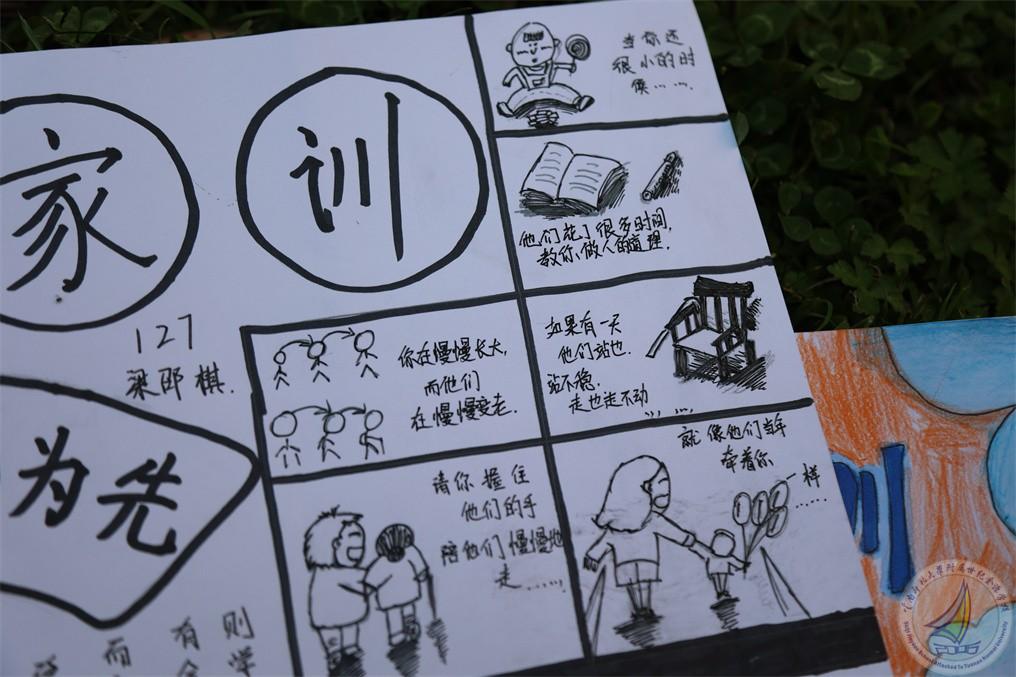 家训
127
梁郎棋.
为先
当你还
很小的时
候……
他们花了很多时间,
教你做人的道理.
你在慢慢长大,
而他们
在慢慢变老.
如果有一天
他们站也
站不稳.
走也走不动
……
请你握住
他们的手
陪他们慢慢地
走……
就像他们当年
牵着你
一样
……
而有则